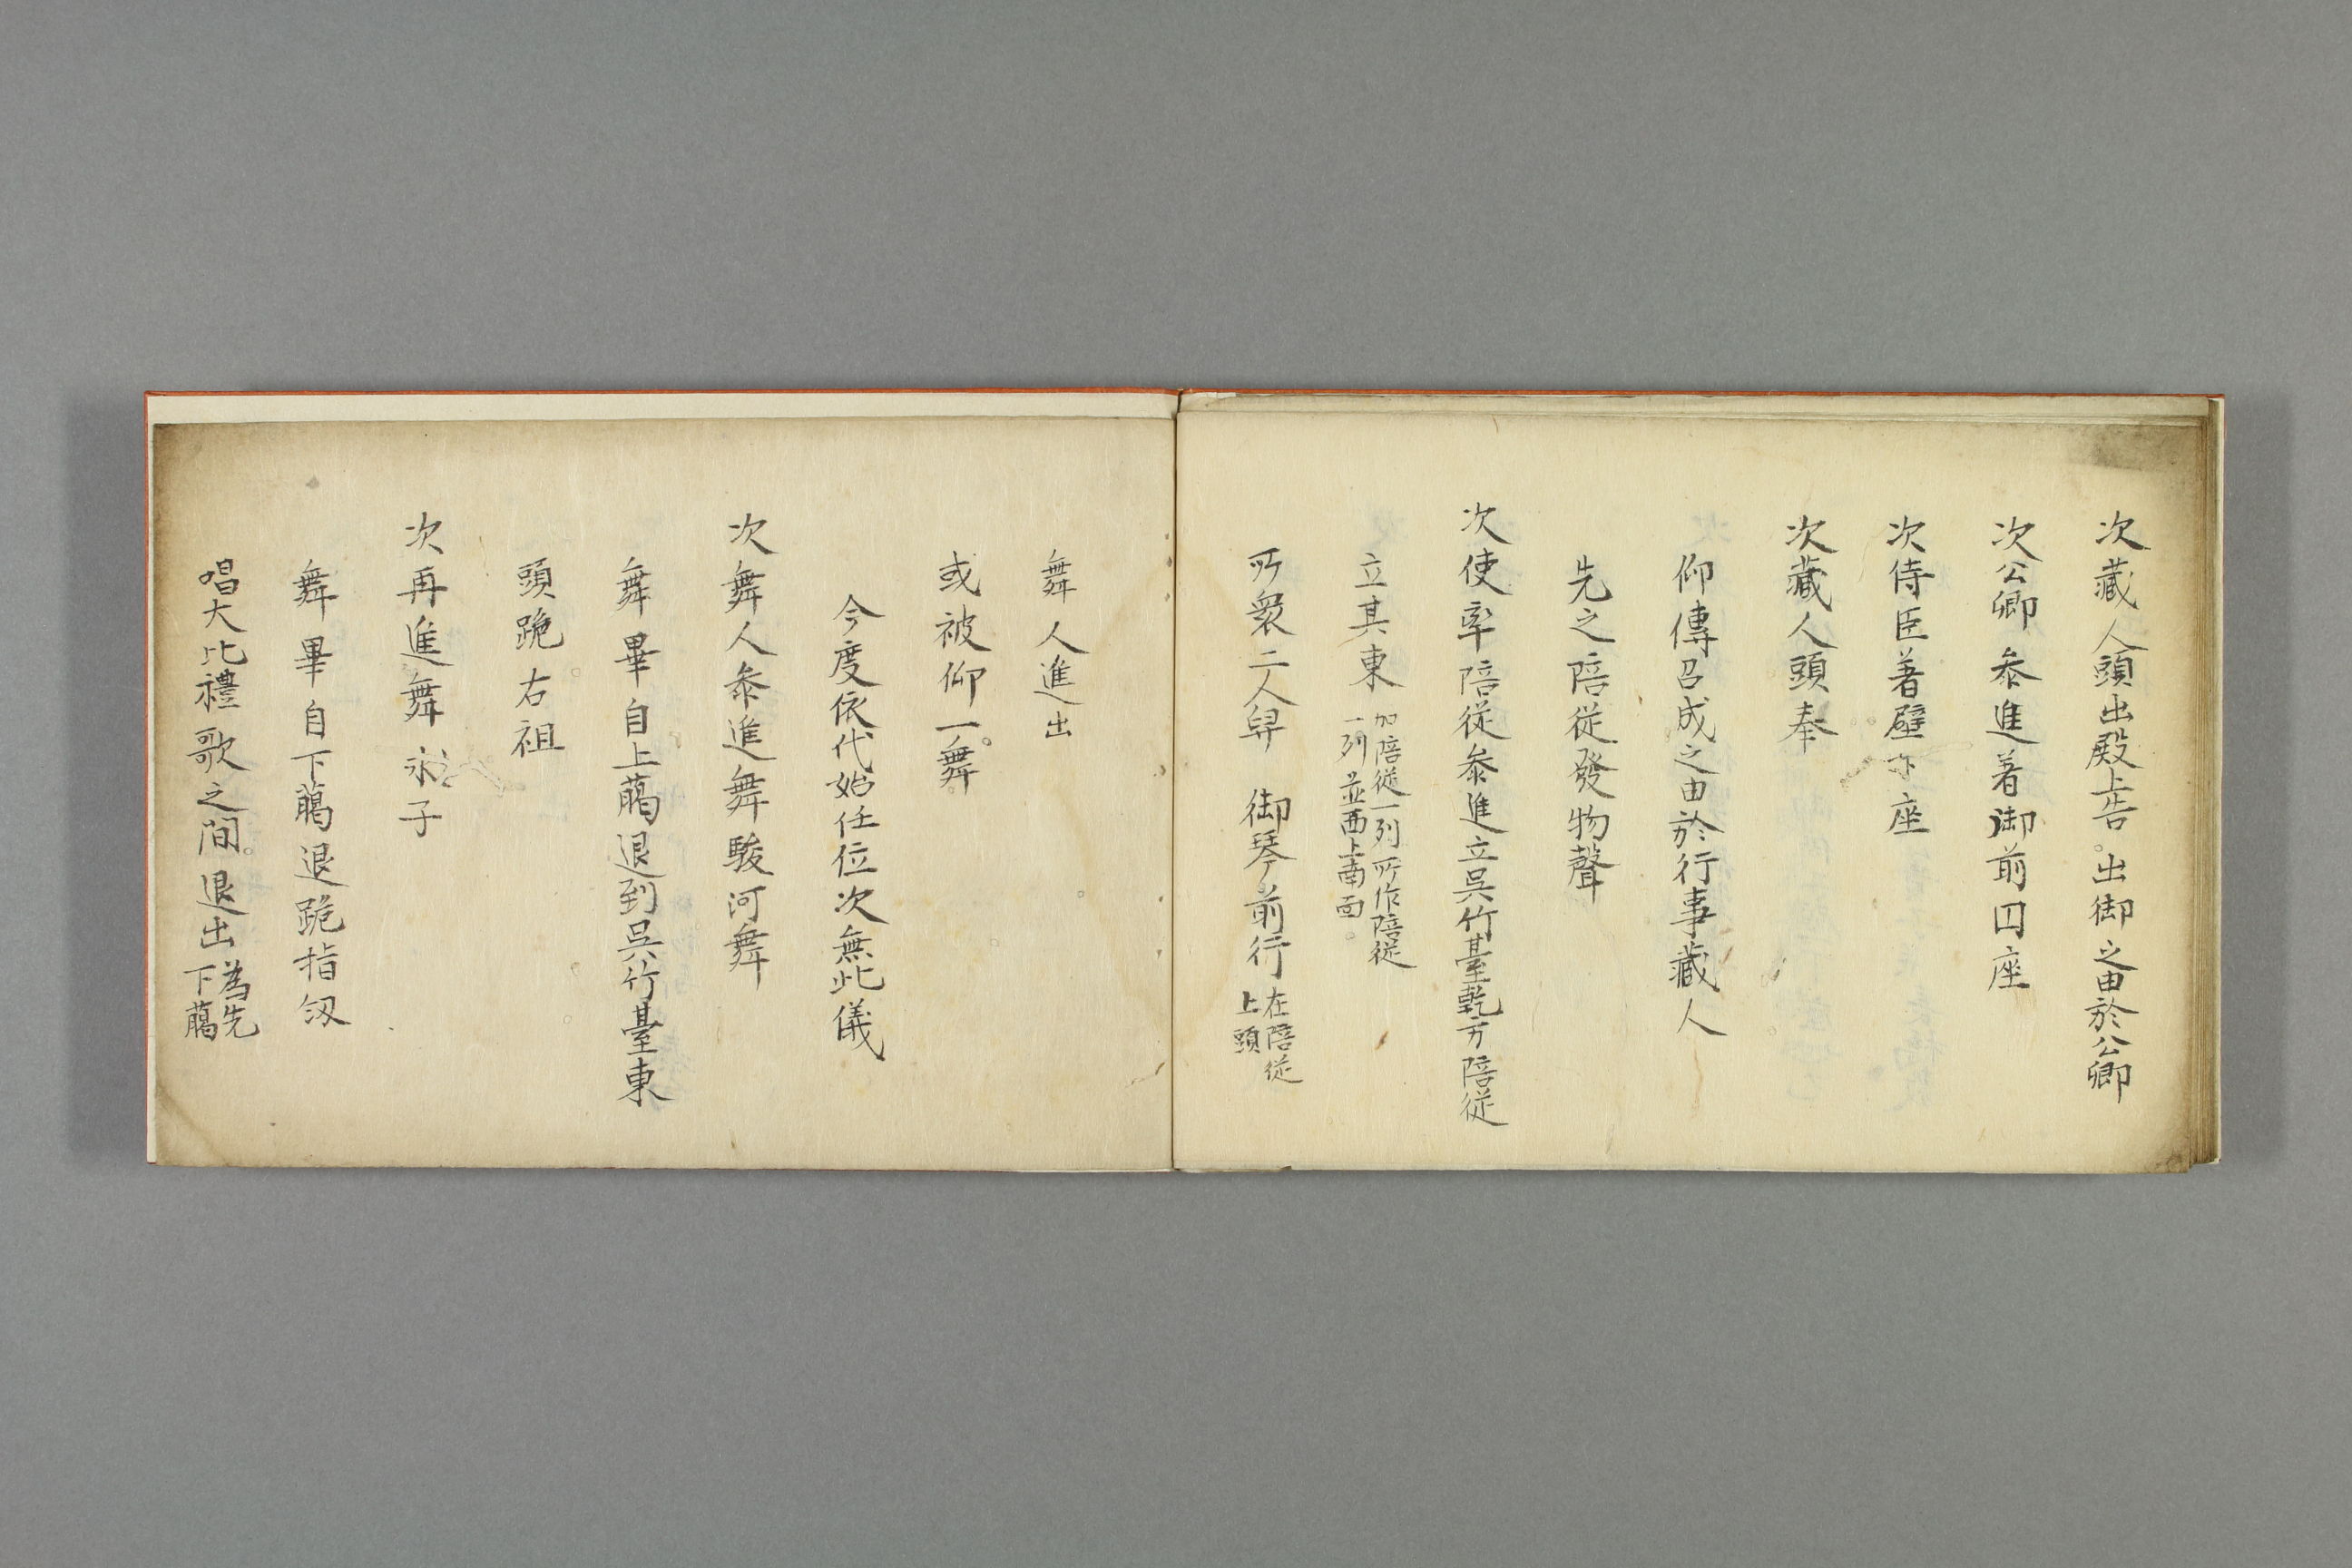 次藏人頭出殿上告出御之由於公卿
次公卿参進著御前円座
次侍臣著壁下座
次藏人頭奉
仰傳召成之由於行事藏人
先之陪従發物聲
次使率陪従参進立呉竹臺乾方陪従
立其東加陪従一列所作陪従
一列並西上南面
所衆二人舁御琴前行在陪従
上頭
舞人進出
或被仰一舞
今度依代始任位次無此儀
次舞人参進舞駿河舞
舞畢自上﨟退到呉竹臺東
頭跪右袒
次再進舞求子
舞畢自下﨟退跪指笏
唱大比禮歌之間退出為先
下﨟